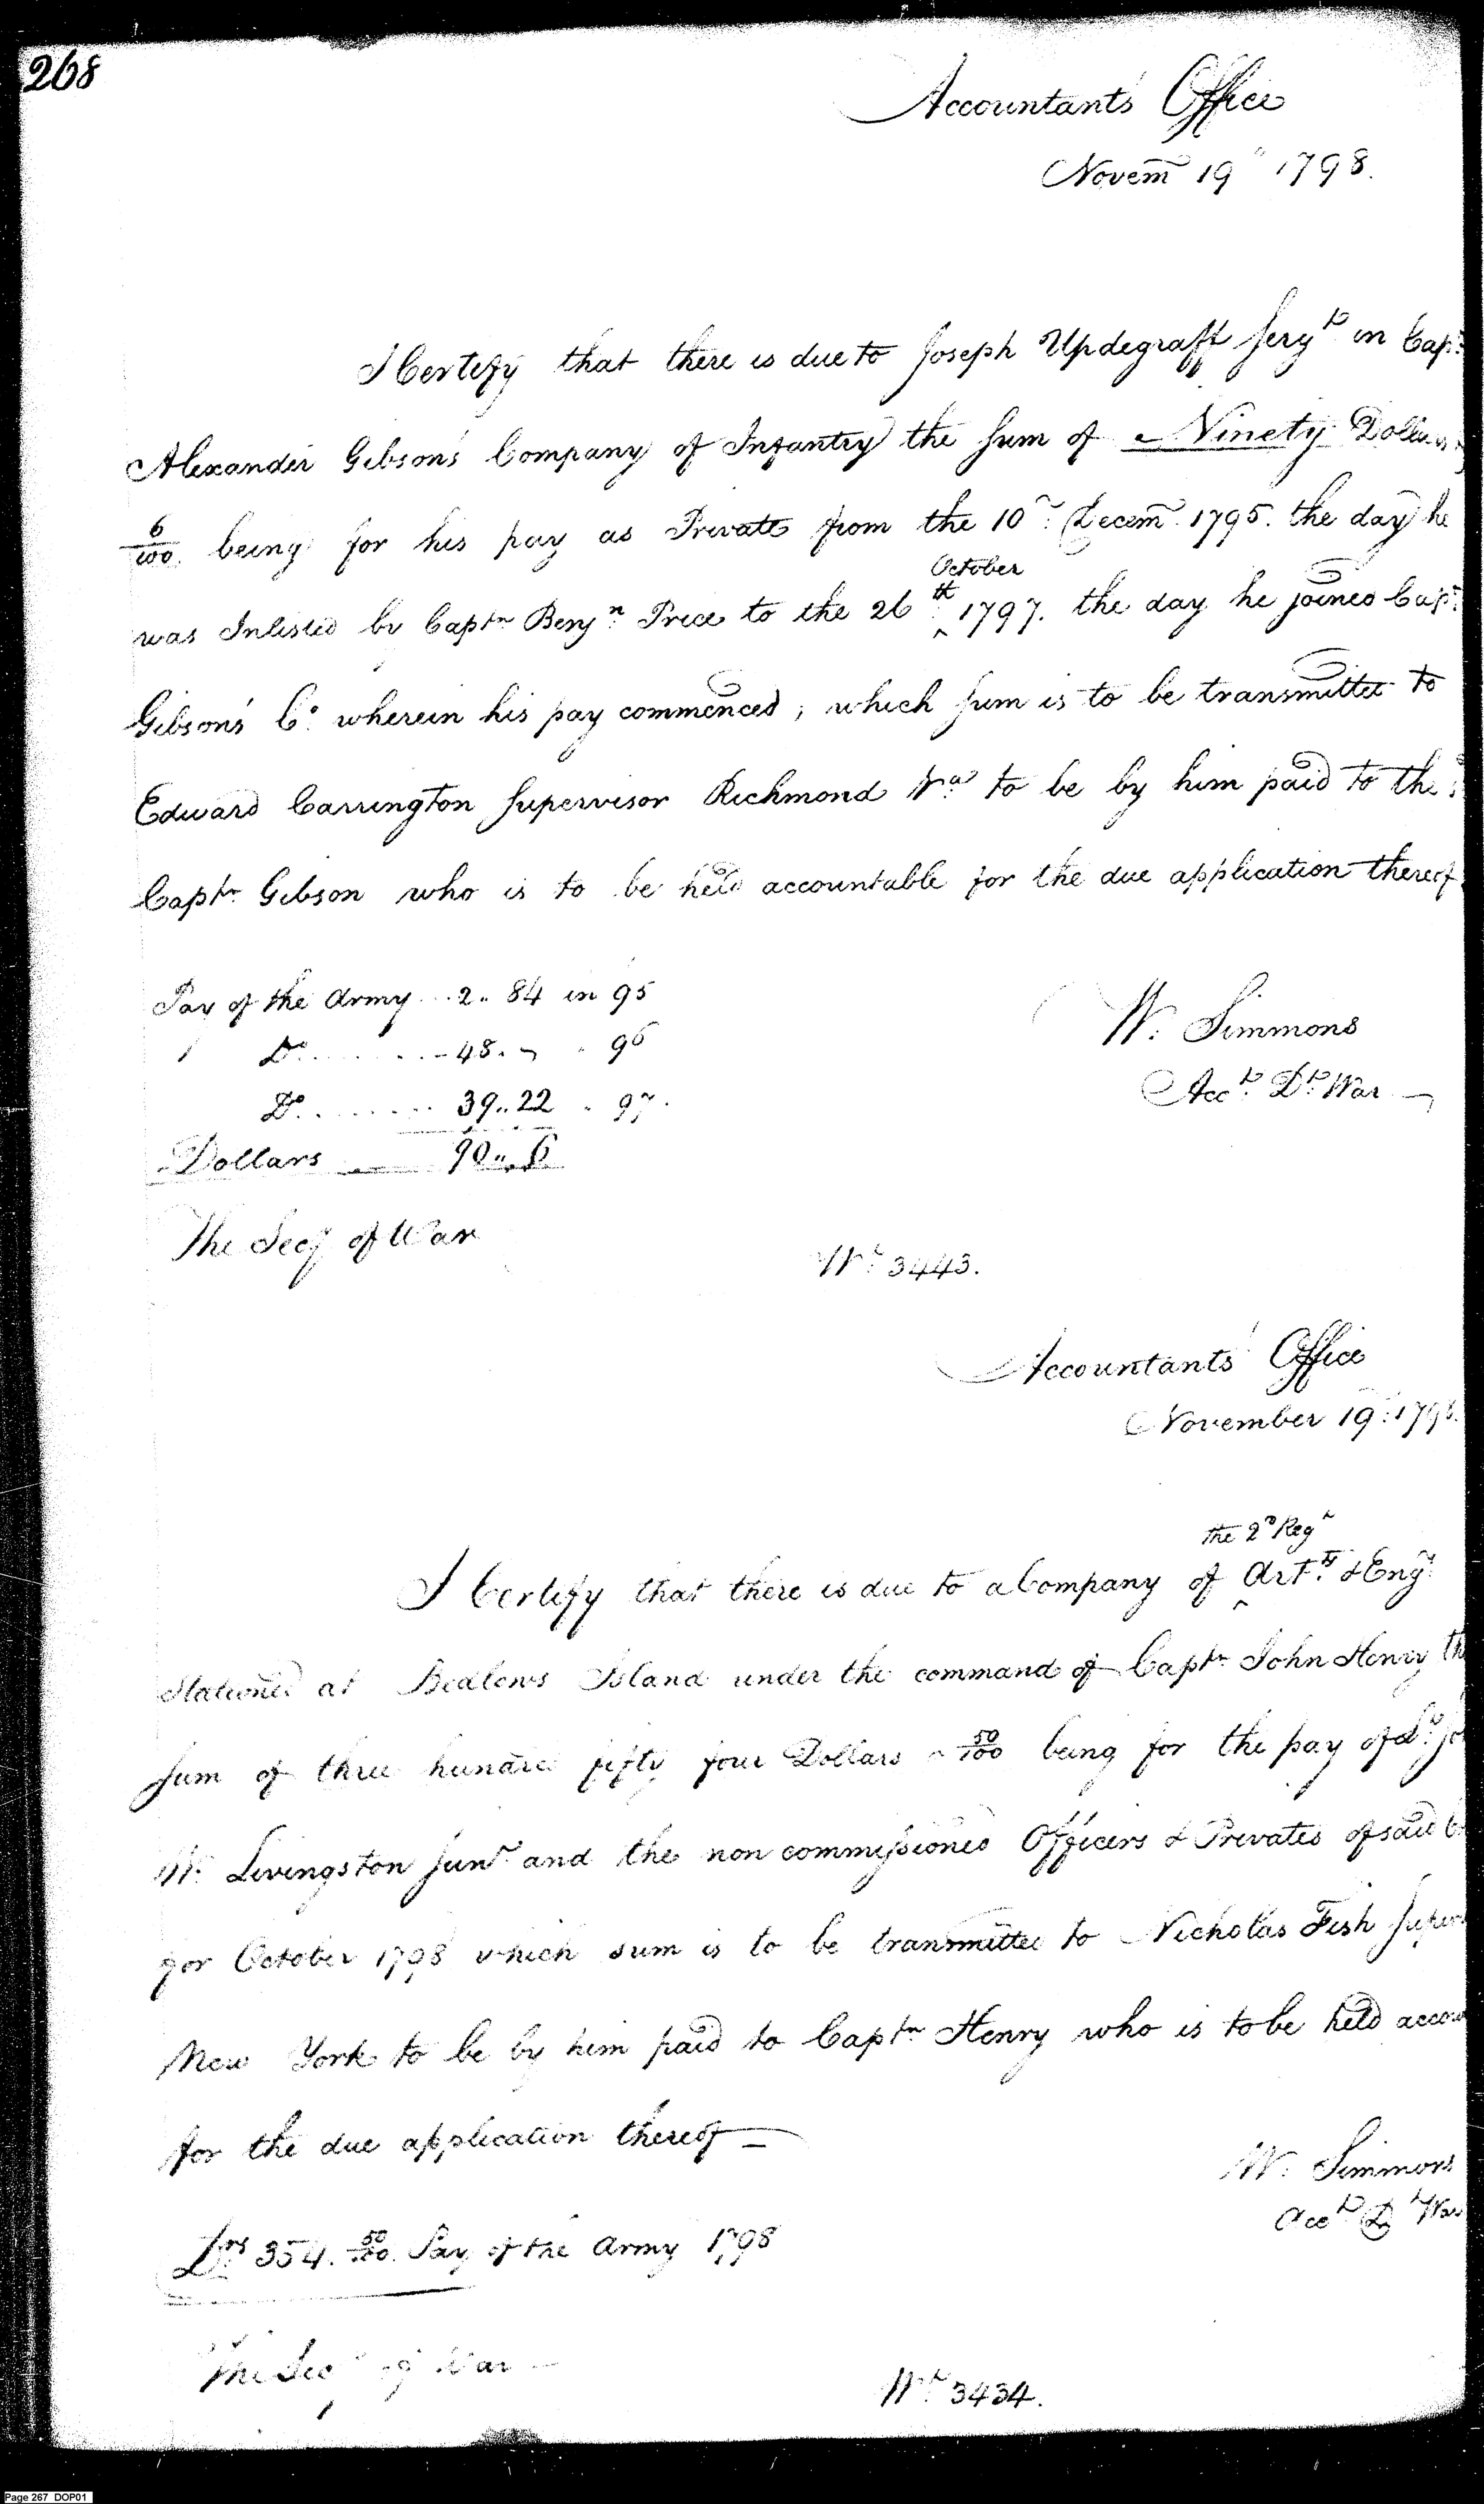 268
Accountants' Office
Novem 19th 1798.
I Certify that there is due to Joseph Updegraff Sergt in Capt
Alexander Gibson's Company of Infantry the Sum of Ninety Dollars
6/100 being for his pay as Private from the 10th Decem 1795. the day he
October
was Inlisted by Captn Benjn Price to the 26th ^ 1797. the day he joined Capt
Gibson's Co. wherein his pay commenced, which sum is to be transmitted to
Edward Carrington Supervisor Richmond Va to be by him paid to the
Captn Gibson who is to be held accountable for the due application thereof
Pay of the Army 2.. 84 in 95
Do. 48. " 96
Do. 39..22 " 97.
Dollars 90..6
W. Simmons
Acct Dt War
The Secy of War
Wt 3443.
Accountants' Office
November 19th 1798.
the 2d Regt
I Certify that there is due to a Company of ^ Arty & Engs
stationed at Bedlows Island under the command of Captn John Henry the
sum of three hundred fifty four Dollars 50/100 being for the pay of
W. Livingston Junr and the non commissioned Officers & Privates of said
for October 1798 which sum is to be transmitted to Nicholas Fish
New York to be by him paid to Captn Henry who is to be held
for the due application thereof
W. Simmons
Acct D War
Drs 354. 50/100 Pay of the Army 1798
The Secy of War
Wt 3434.
Page 267 DOP01